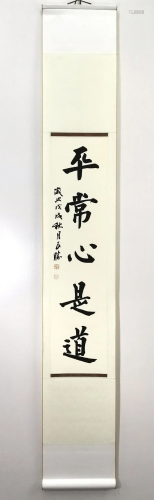 平常心是道
歲次戊戌秋月